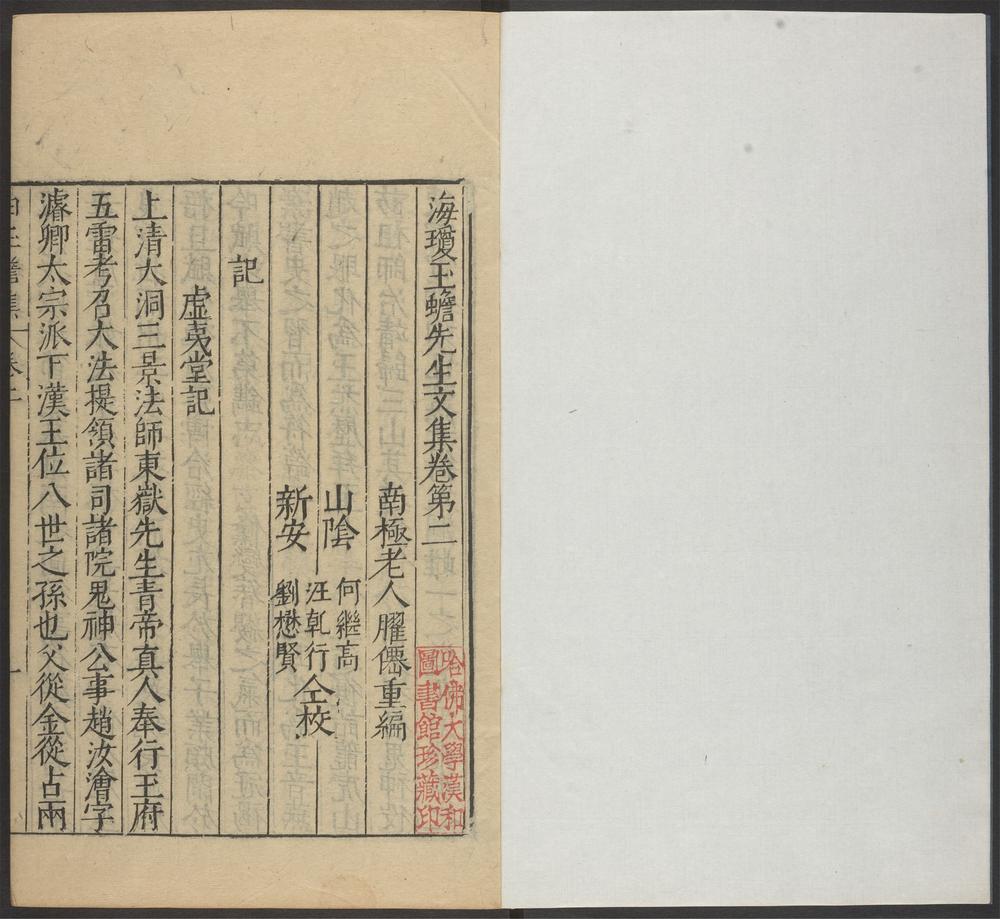 海瓊玉蟾先生文集卷第二
南極老人臞僊重編
山陰 何繼高
新安 汪乾行 仝校
劉懋賢
記
虛夷堂記
上清大洞三景法師東嶽先生青帝真人奉行玉府
五雷考召大法提領諸司諸院鬼神公事趙汝澮字
濬卿太宗派下漢王位八世之孫也父從金從占兩
白玉蟾集 卷二 一
哈佛大學漢和
圖書館珍藏印